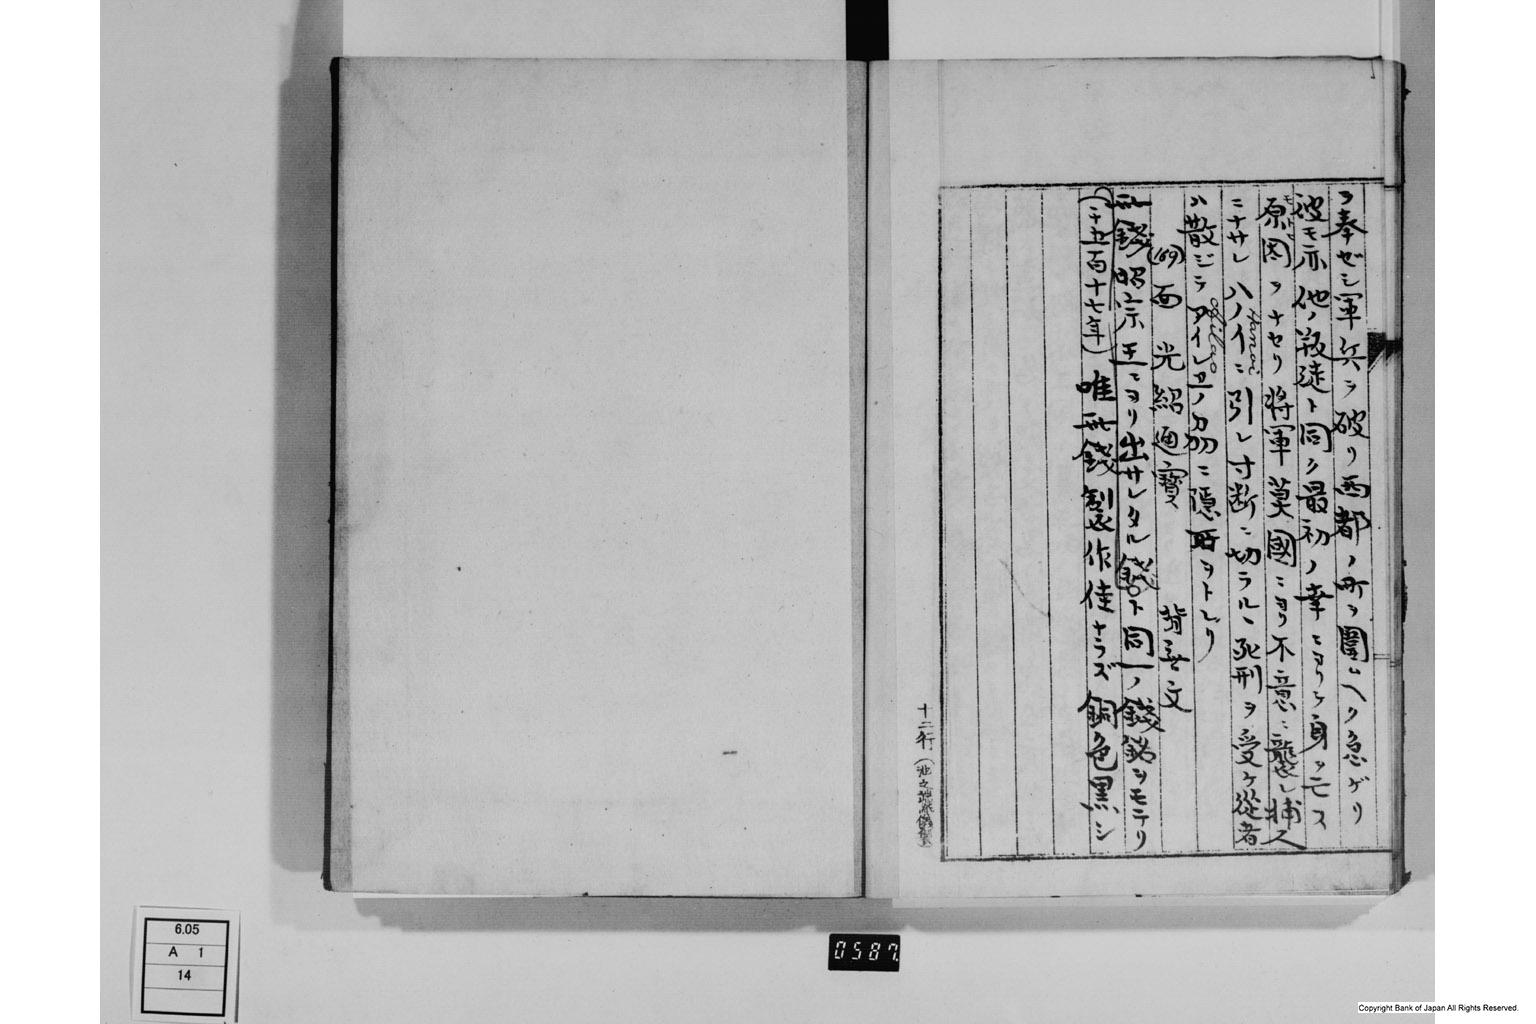 ヲ奉ゼシ軍兵ヲ破リ西都ノ町ヲ圍ム
彼モ亦他ノ叛徒ト同シク最初ノ幸ニヨリ身ヲ亡ス
原因ヲナセリ將軍莫國ニヨリ不意ニ襲レ捕ス
ニナサレ ハノイニ引レ寸断ニ切ラルヽ死刑ヲ受ケ從者
Hanoi
ハ散ジテ アイレヲノ劦ニ隱所ヲトレリ
Ailao
(169) 面 光紹通寶 背無文
此錢昭宗王ニヨリ出サレタル錢ト同一ノ錢銘ヲモテリ
(千五百十七年) 唯此錢製作佳ナラズ銅色黒シ
十二行
6.05
A 1
14
0587
Copyright Bank of Japan All Rights Reserved.